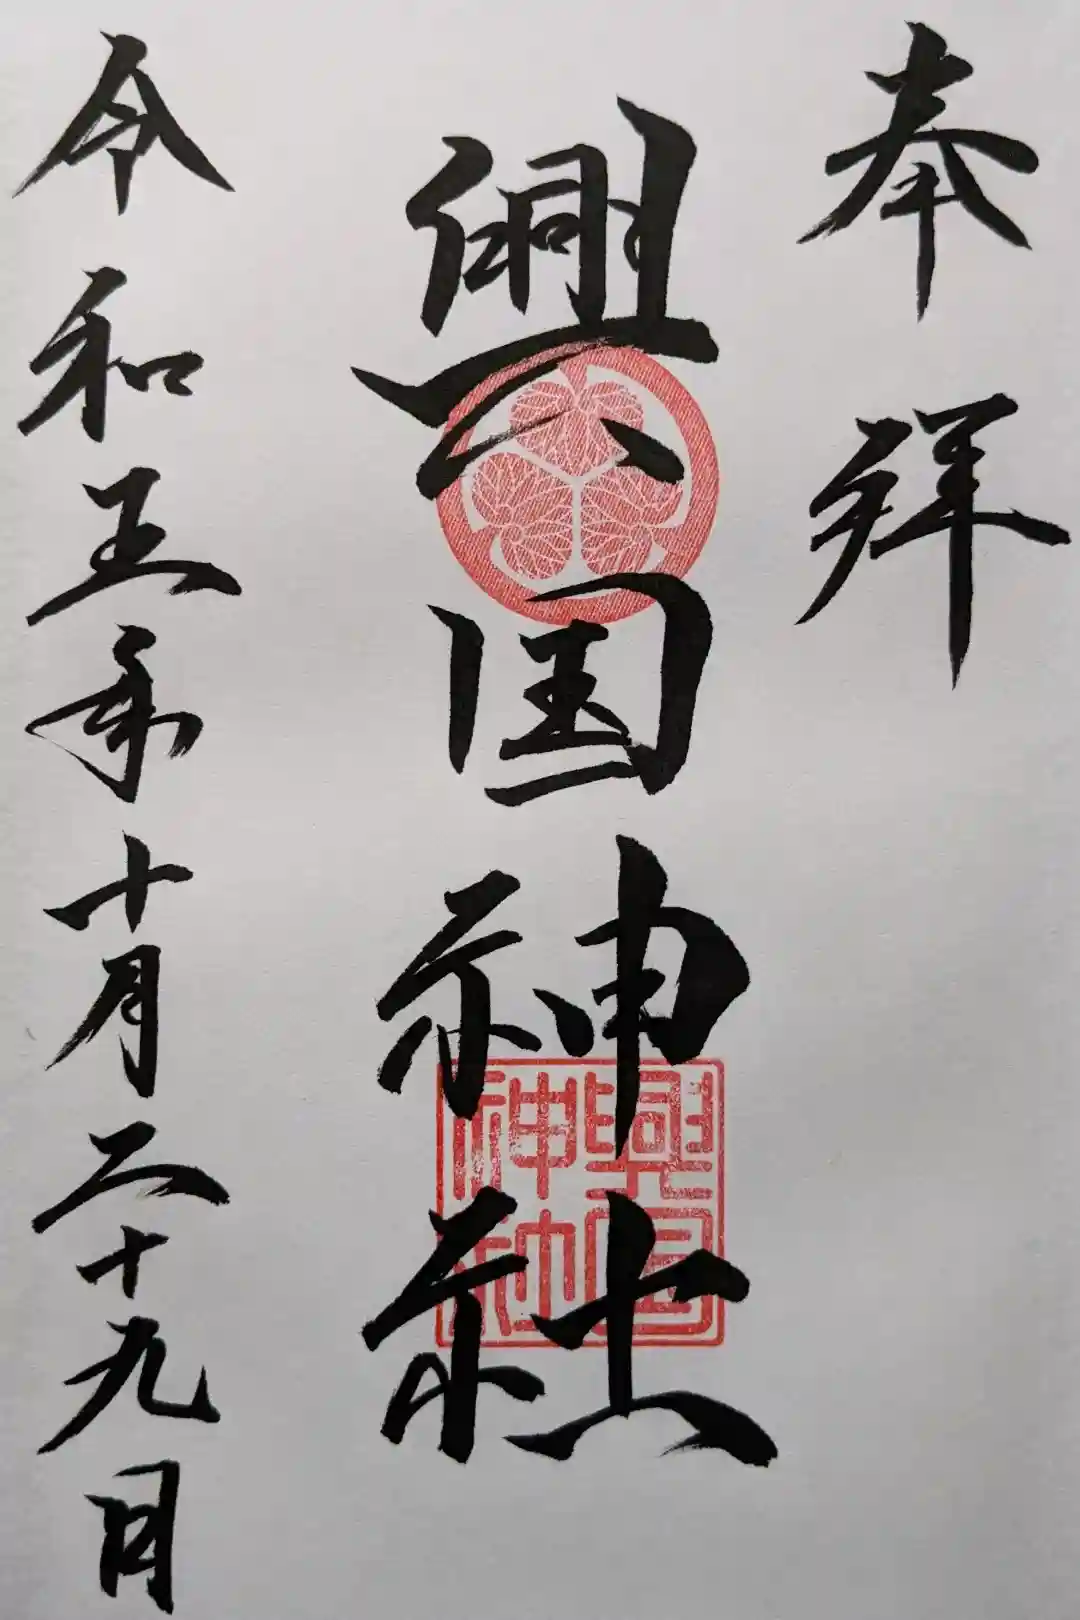 奉拝
興国神社
興國神社
令和五年十月二十九日